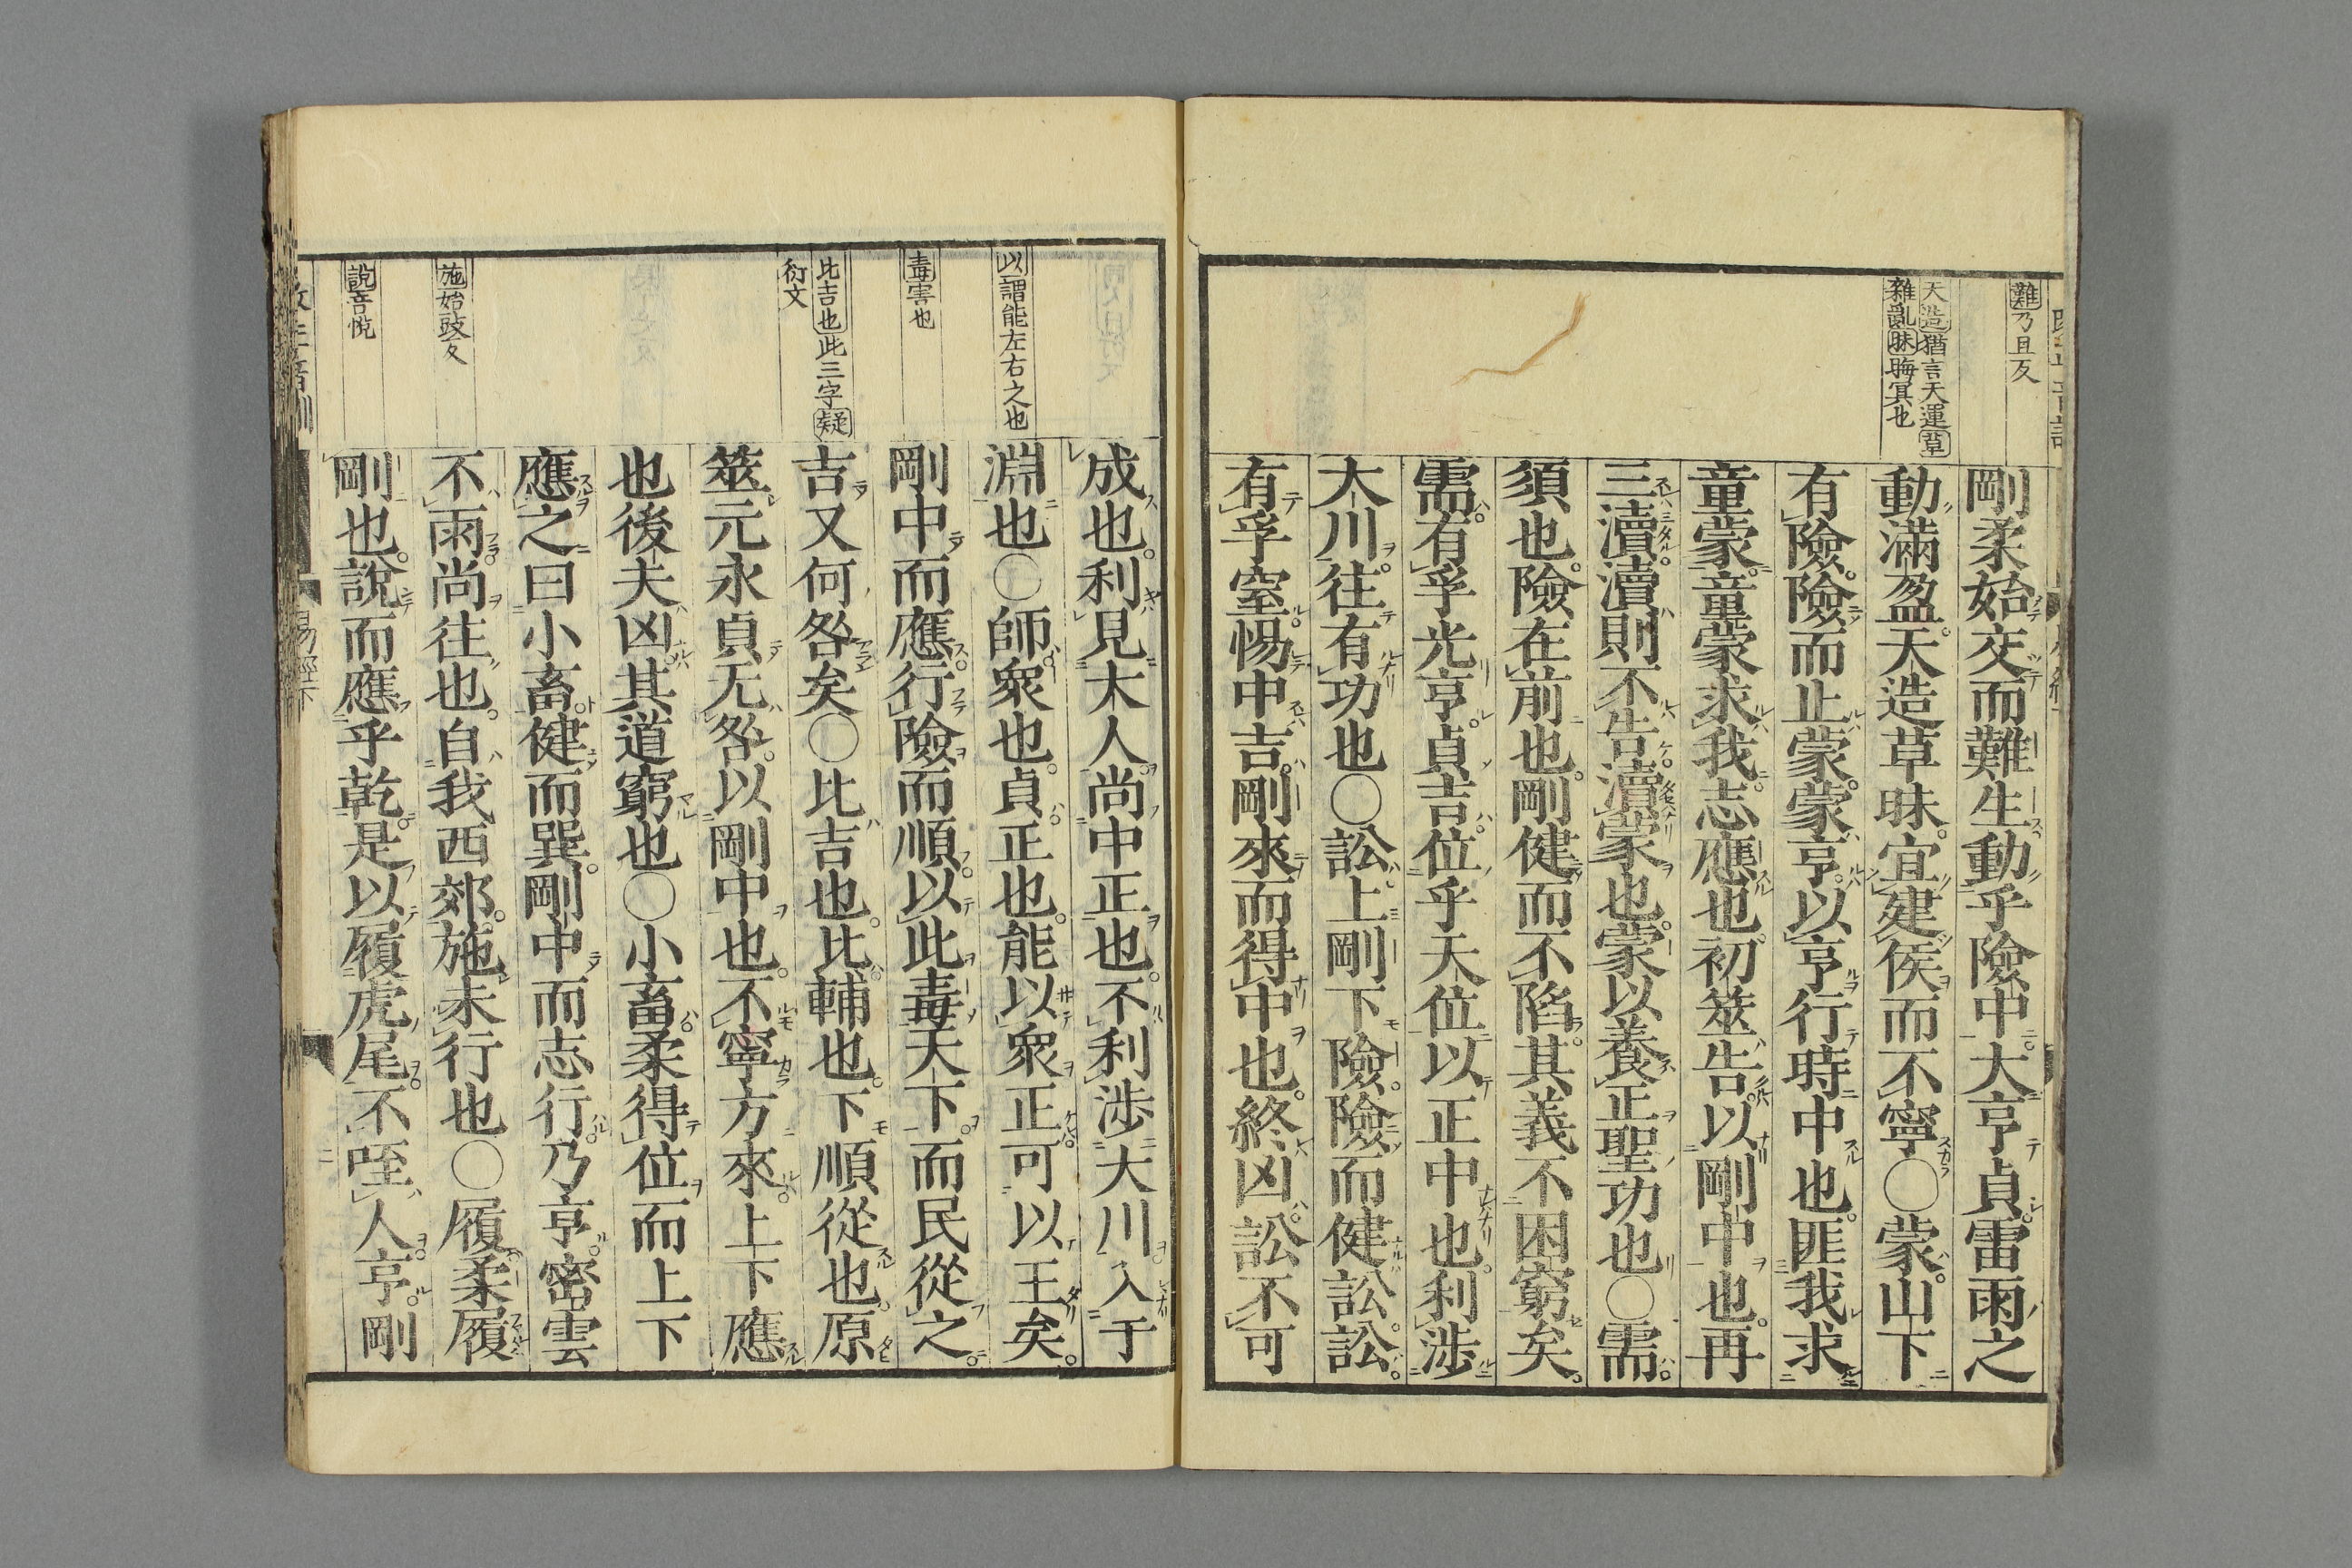 難乃且反
天造猶言天運草
雜亂昧晦冥也
剛柔始交而難生動乎險中大亨貞雷雨之
動滿盈天造草昧宜建侯而不寧○蒙山下
有險險而止蒙蒙亨以亨行時中也匪我求
童蒙童蒙求我志應也初筮告以剛中也再
三瀆瀆則不告瀆蒙也蒙以養正聖功也○需
須也險在前也剛健而不陷其義不困窮矣
需有孚光亨貞吉位乎天位以正中也利涉
大川往有功也○訟上剛下險險而健訟訟
有孚窒惕中吉剛來而得中也終凶訟不可
以謂能左右之也
毒害也
比吉也此三字疑
衍文
施始豉反
說音悅
成也利見大人尚中正也不利涉大川入于
淵也○師衆也貞正也能以衆正可以王矣
剛中而應行險而順以此毒天下而民從之
吉又何咎矣○比吉也比輔也下順從也原
筮元永貞无咎以剛中也不寧方來上下應
也後夫凶其道窮也○小畜柔得位而上下
應之曰小畜健而巽剛中而志行乃亨密雲
不雨尚往也自我西郊施未行也○履柔履
剛也說而應乎乾是以履虎尾不咥人亨剛
易經下